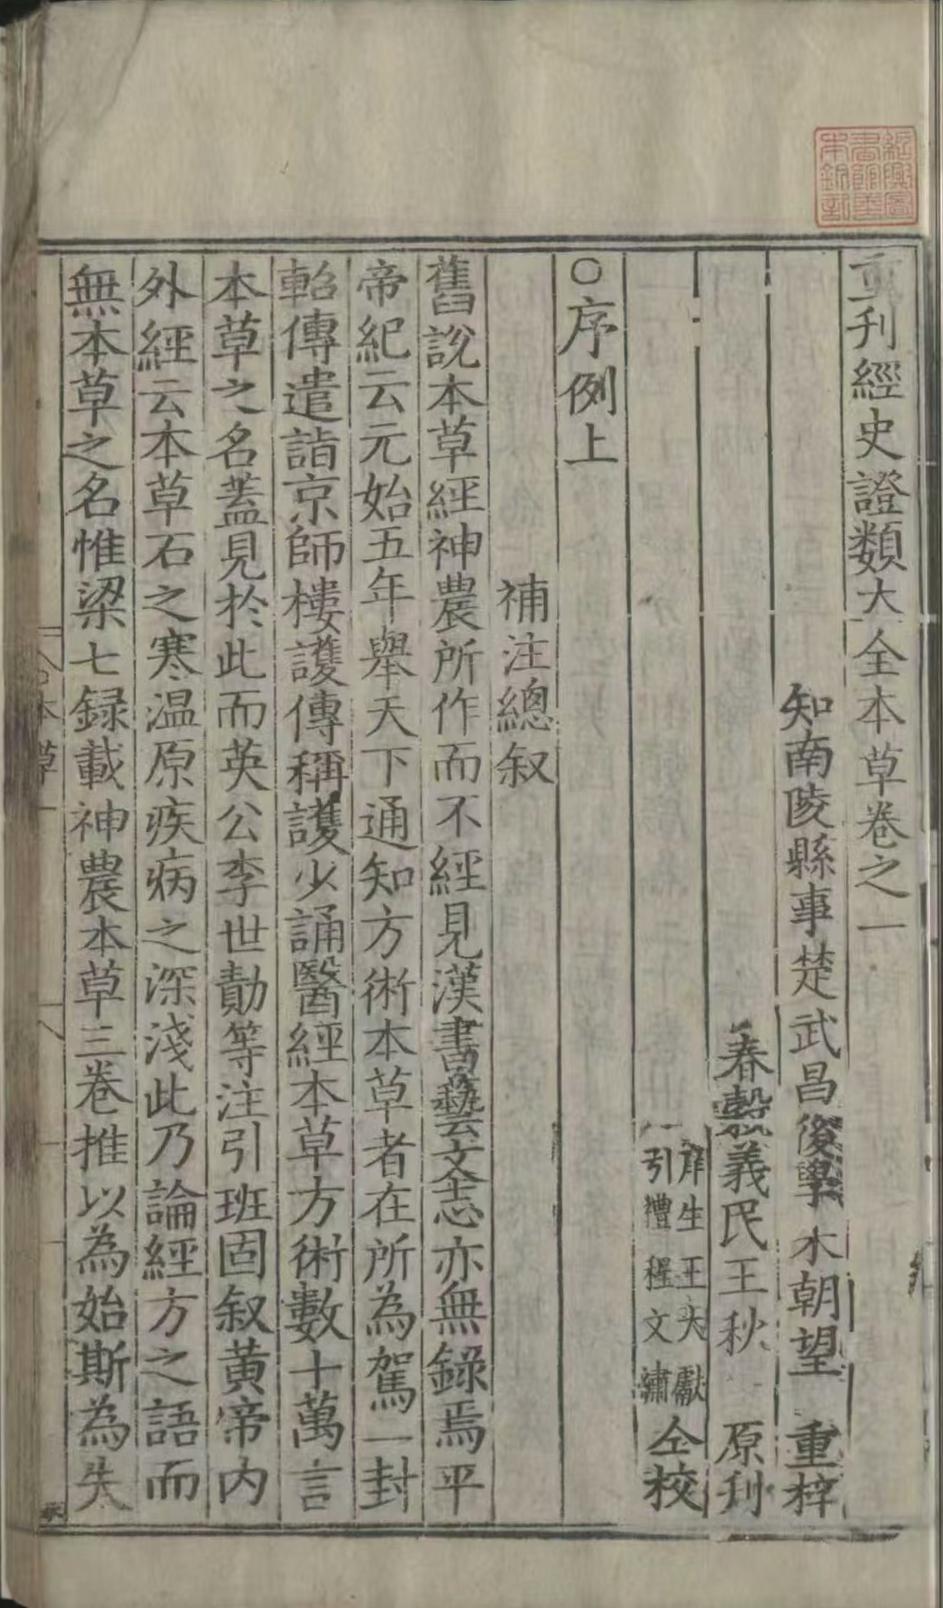 重刊經史證類大全本草卷之一
知南陵縣事楚武昌後學朱朝望 重梓
春穀義民王秋 原刋
庠生王大獻
引禮程文繡
仝校
○序例上
補注總叙
舊說本草經神農所作而不經見漢書藝文志亦無錄焉平
帝紀云元始五年舉天下通知方術本草者在所為駕一封
軺傳遣詣京師樓護傳稱護少誦醫經本草方術數十萬言
本草之名蓋見於此而英公李世勣等注引班固叙黃帝内
外經云本草石之寒温原疾病之深淺此乃論經方之語而
無本草之名惟梁七録載神農本草三卷推以為始斯為失